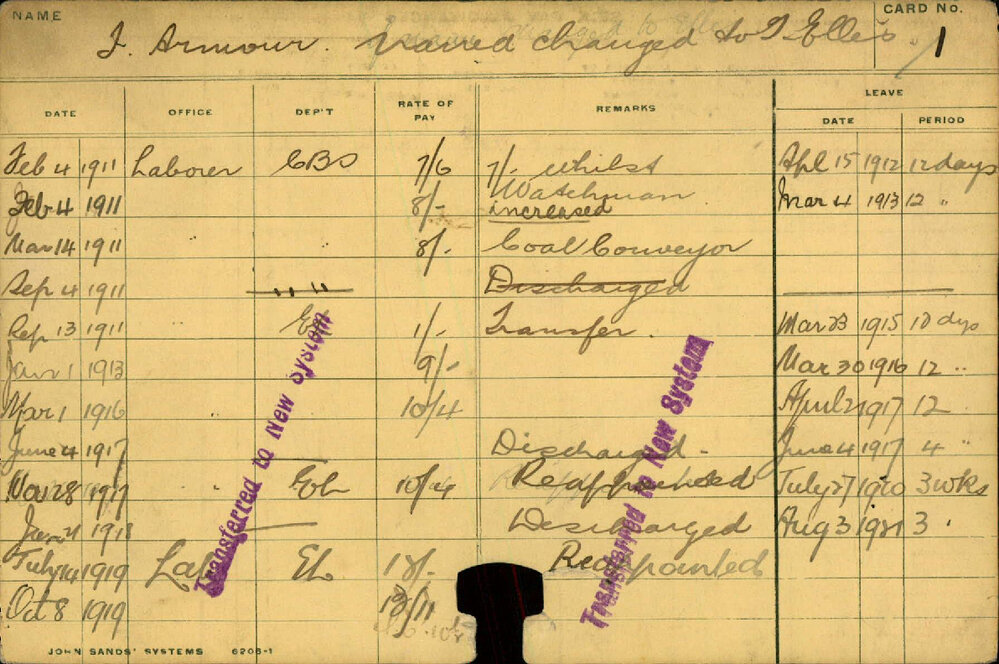 NAME CARD No.
J. Armour. Named changed to J Elles 1
DATE OFFICE DEP'T RATE OF PAY REMARKS LEAVE
DATE PERIOD
Feb 4 1911 Laborer CBS 7/6 7/- whilst Apl 15 1912 12 days
Watchman
Feb 4 1911 8/- increased Mar 4 1913 12 "
Mar 14 1911 8/- Coal Conveyor
Sep 4 1911 " " Discharged
Sep 13 1911 1/- Transfer. Mar 23 1915 10 dys
Jan 1 1913 9/- Mar 30 1916 12 "
Mar 1 1916 10/4 April 2 1917 12
June 4 1917 Discharged - June 4 1917 4 "
Nov 28 1917 EL 10/4 Reappointed July 27 1920 3 wks
1918 Discharged Aug 3 1921 3 "
July 14 1919 Lab EL Reappointed
Oct 8 1919
Transferred to New System
Transferred to New System
JOHN SANDS' SYSTEMS 6208-1